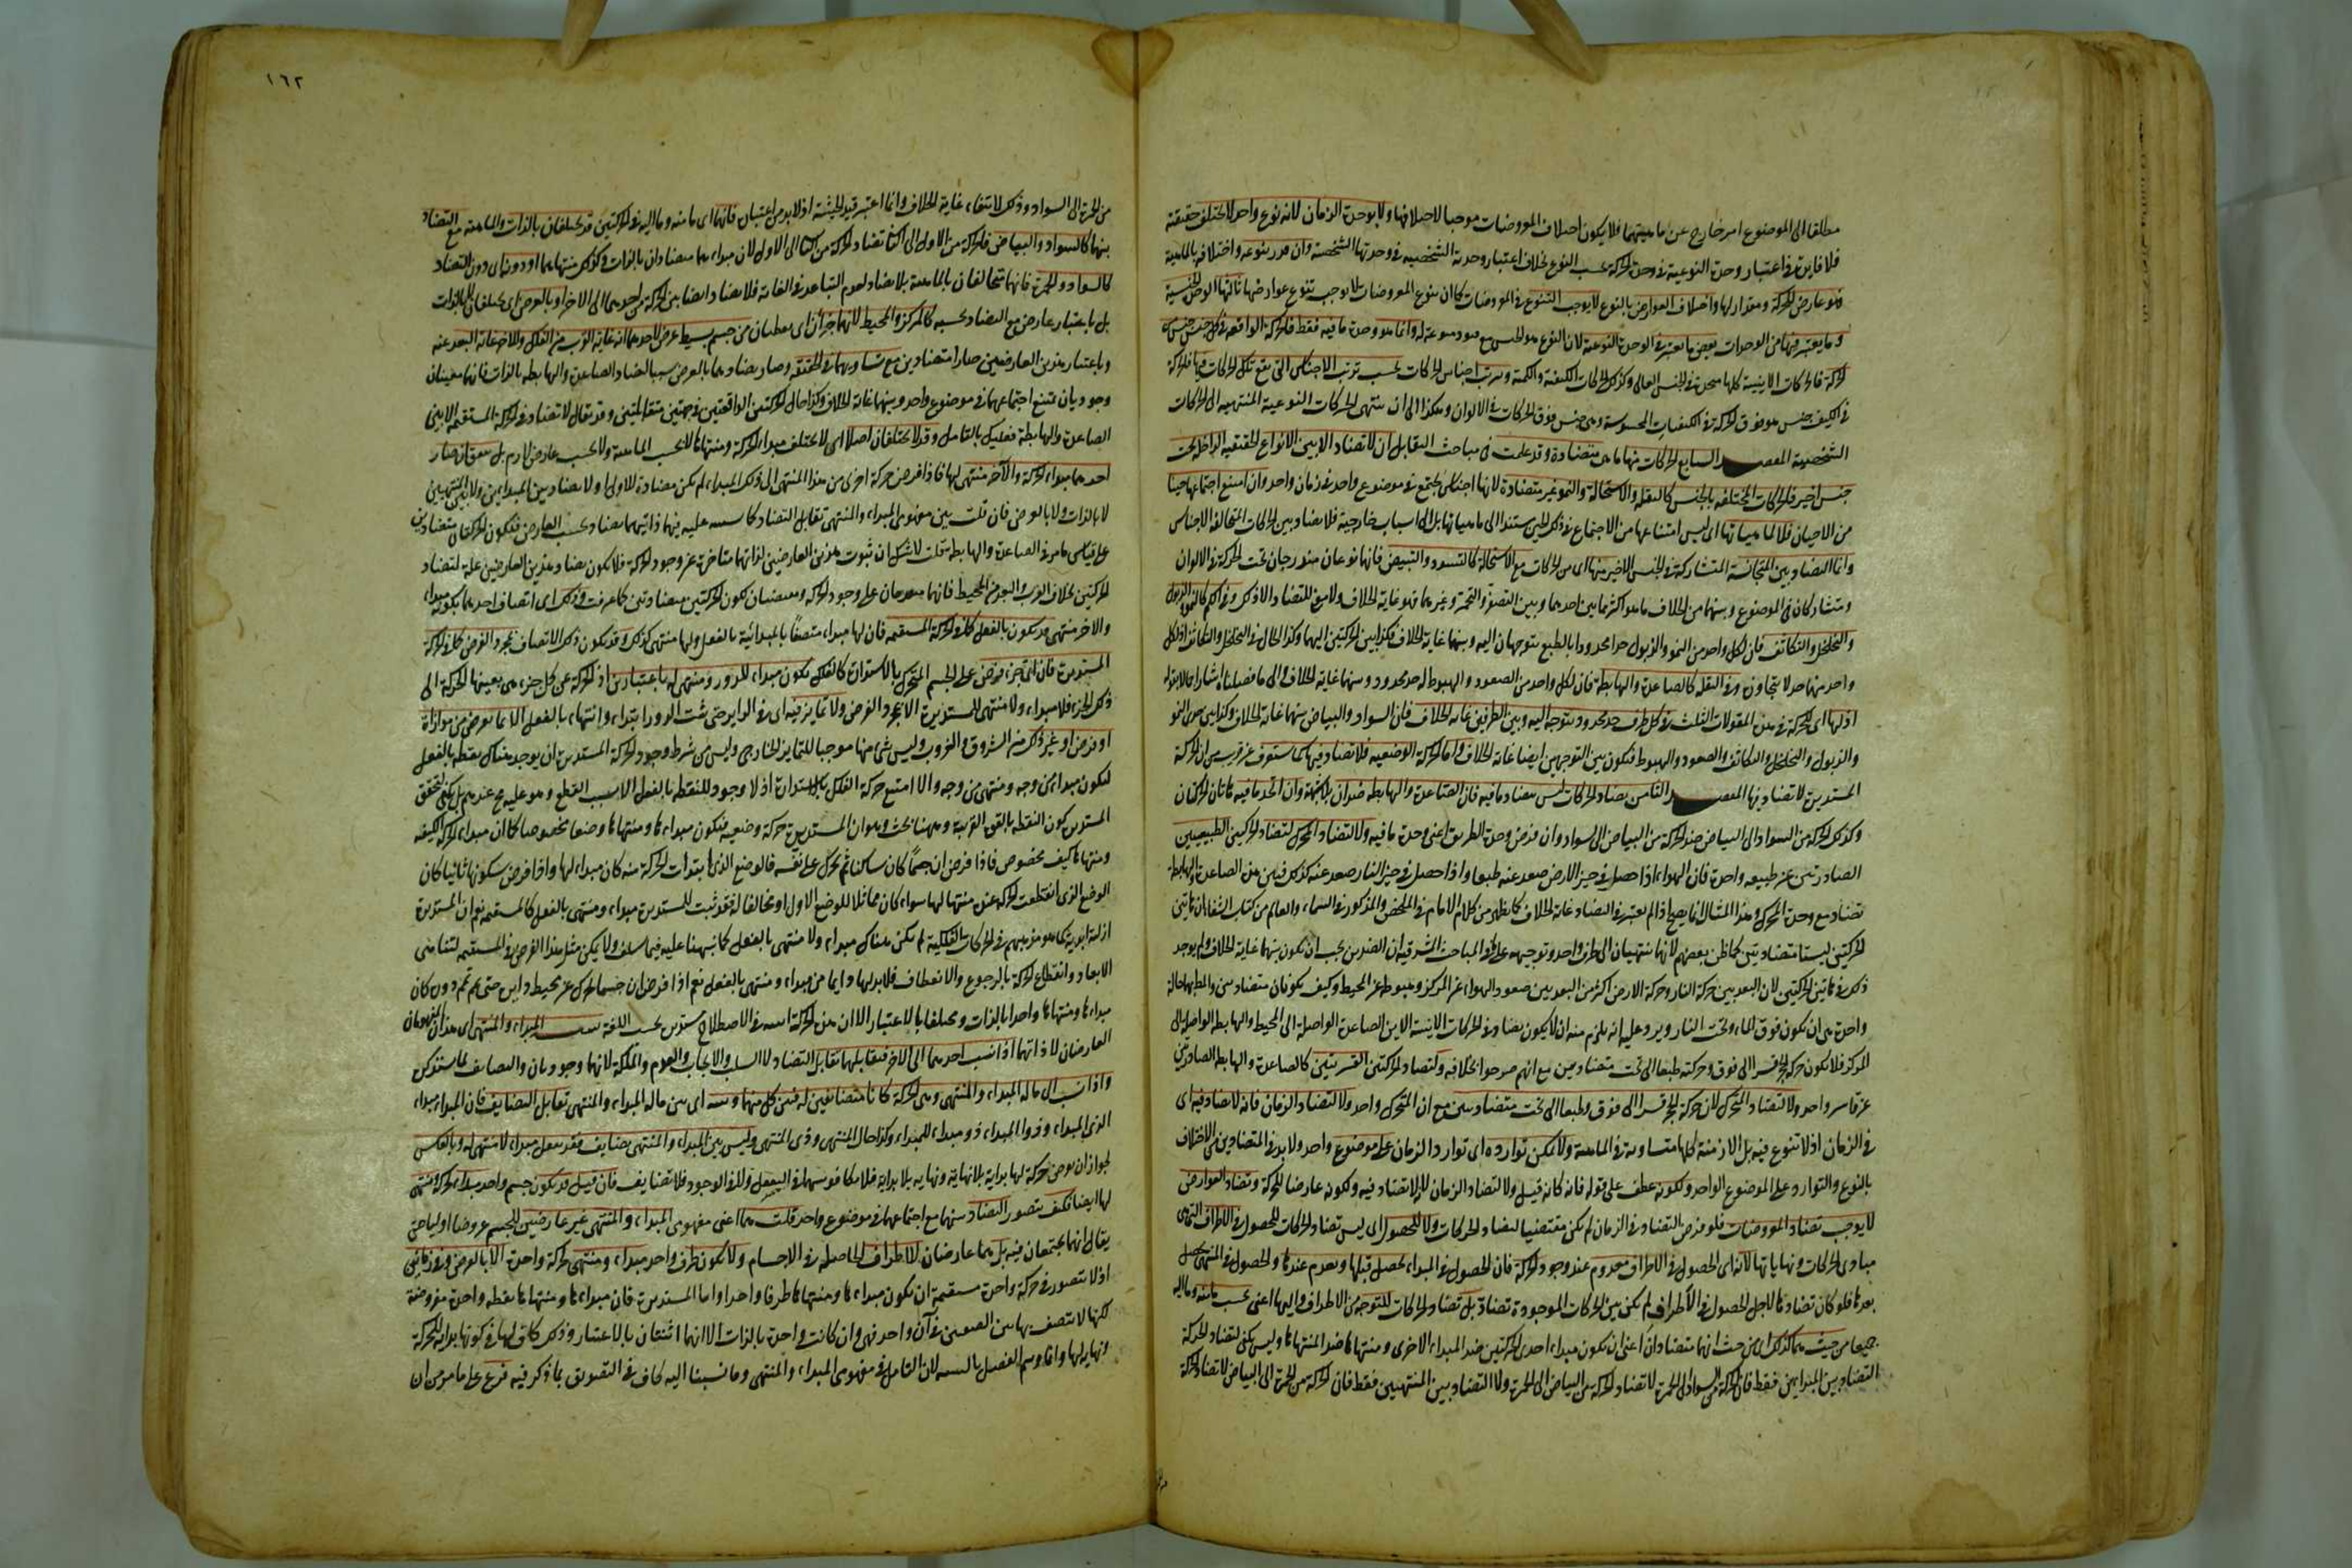 مطلقا الى الموضوع امر خارج عن ماهيتهما فلا يكون اختلاف المعروضات موجبا لاختلافها ولا بوحدة الزمان لانه نوع واحد لا يختلف حقيقة
فلا فايدة في اعتبار وحدة النوعية في وحدة الحركة بحسب النوع بخلاف اعتبار وحدته الشخصية في وحدتها الشخصية وان قدر تنوعه واختلافه بالماهية
فهو عارض للحركة ومقدار لها واختلاف العوارض بالنوع لا يوجب التنوع في المعروضات كما ان تنوع المعروضات لا يوجب تنوع عوارضها ثالثها الوحدة الجنسية
وما يعتبر فيها من الوحدات بعض ما يعتبر في الوحدة النوعية لان النوع هو الجنس مع قيود منوعة له وانما هو وحدة ما فيه فقط فالحركة الواقعة في كل جنس جنس
حركة فالحركات الاينية كلها متحدة في الجنس العالي وكذلك الحركات الكيفية والكمية وترتب اجناس الحركات بحسب ترتب الاجناس التي تقع تلك الحركات فيها فالحركة
في الكيف جنس هو فوق الحركة في الكيفيات المحسوسة وهي جنس فوق الحركات في الالوان وهكذا الى ان تنتهي الحركات النوعية المنتهية الى الحركات
الشخصية المقصد السابع الحركات منها ما هي متضادة وقد علمت في مباحث التقابل ان لا تضاد الا بين الانواع الحقيقية الداخلة تحت
جنس اخير فالحركات المختلفة بالجنس كالنقلة والاستحالة والنمو غير متضادة لانها اجناس تجتمع في موضوع واحد في زمان واحد وان امتنع اجتماعها حينا
من الاحيان فلا لماهياتها اى ليس امتناعها من الاجتماع في ذلك الحين مستندا الى ماهياتها بل الى اسباب خارجية فلا تضاد بين الحركات المتخالفة الاجناس
وانما التضاد بين المتجانسة المتشاركة في الجنس الاخير منها اى من الحركات مع الاستحالة كالتسود والتبيض فانهما نوعان مندرجان تحت الحركة في الالوان
ومتشاركان في الموضوع وبينهما من الخلاف ما هو اكثر مما بين احدهما وبين التصفر والتحمر وغيرهما فهو غاية الخلاف ولا معنى للتضاد الا ذلك وفي الكم كالنمو والذبول
والتخلخل والتكاثف فان لكل واحد من النمو والذبول حدا محدودا بالطبع يتوجهان اليه وبينهما غاية الخلاف فكذا بين الحركتين اليهما وكذا الحال في التخلخل والتكاثف اذ لكل
واحد منهما حد لا يتجاوزه وفي النقلة كالصاعدة والهابطة فان لكل واحد من الصعود والهبوط له حد محدود وبينهما غاية الخلاف والى ما فصلناه اشار اجمالا بقوله
اذ لها اى للحركة في هذه المقولات الثلث في كل طرف حد محدود يتوجه اليه وبين الطرفين غاية الخلاف فان السواد والبياض بينهما غاية الخلاف وكذا بين حدى النمو
والذبول والتخلخل والتكاثف والصعود والهبوط فتكون بين التوجهين ايضا غاية الخلاف واما الحركة الوضعية فلا تضاد فيها كما ستعرف عن قريب من ان الحركة
المستديرة لا تضاد فيها المقصد الثامن تضاد الحركات ليس بتضاد ما فيه فان الصاعدة والهابطة ضدان بالماهية وان اتحد ما فيه فاتان الحركتان
وكذلك الحركة من السواد الى البياض ضد الحركة من البياض الى السواد وان فرض وحدة الطريق اعنى وحدة ما فيه ولا لتضاد المحرك لتضاد الحركتين الطبيعيتين
الصادرتين عن طبيعة واحدة فان الهواء اذا حصل في حيز الارض صعد عنه طبعا واذا حصل في حيز النار صعد عنه كذلك فبين هذه الصاعدة والهابطة
تضاد مع وحدة المحرك وهذا المثال انما يصح اذا لم يعتبر في التضاد غاية الخلاف كما يظهر من كلام الامام في الملخص والمذكور في السماء والعالم من كتاب الشفا ان هاتين
الحركتين ليستا متضادتين كما ظن بعضهم لانهما تنتهيان الى طرف واحد وتوجيهه على ما في المباحث المشرقية ان الضدين يجب ان يكون بينهما غاية الخلاف ولم يوجد
ذلك في هاتين الحركتين لان البعد بين حركة النار وحركة الارض اكثر من البعد بين صعود الهواء عن المركز وهبوطه عن المحيط وكيف يكونان متضادتين والمطلوب حالة
واحدة هي ان تكون فوق الماء وتحت النار ويرد عليه انه يلزم منه ان لا يكون تضاد في الحركات الاينية الا بين الصاعدة الواصلة الى المحيط والهابطة الواصلة الى
المركز فلا تكون حركة الحجر قسرا الى فوق وحركته طبعا الى تحت متضادتين مع انهم صرحوا بخلافه ولتضاد الحركتين القسريتين كالصاعدة والهابطة الصادرتين
عن قاسر واحد ولا لتضاد المتحرك لان حركة الحجر قسرا الى فوق وطبعا الى تحت متضادتين مع ان المتحرك واحد ولا لتضاد الزمان فانه لا تضاد فيه اى
في الزمان اذ لا تنوع فيه بل الازمنة كلها متساوية في الماهية ولا يمكن توارده اى توارد الزمان على موضوع واحد ولا بد في المتضادين من الاختلاف
بالنوع والتوارد على الموضوع الواحد ولكونه عطف على قوله فانه كانه قيل ولا لتضاد الزمان لانه لا تضاد فيه ولكونه عارضا للحركة وتضاد العوارض
لا يوجب تضاد المعروضات فلو فرض التضاد في الزمان لم يكن مقتضيا لتضاد الحركات ولا للحصول اى ليس تضاد الحركات للحصول في الاطراف التي هي
مبادى الحركات ونهاياتها لانه اى الحصول في الاطراف معدوم عند وجود الحركة فان الحصول في المبداء يحصل قبلها ويعدم عندها والحصول في المنتهى يحصل
بعدها فلو كان تضادها لاجل الحصول في الاطراف لم يكن بين الحركات الموجودة تضاد بل تضاد الحركات للتوجه من الاطراف واليها اعنى بحسب ما منه وما اليه
جميعا من حيث هما كذلك اى من حيث انهما متضادان اعنى ان يكون مبداء احدى الحركتين ضد المبداء الاخرى ومنتهاها ضد المنتهاها وليس يكفى لتضاد الحركة
التضاد بين المبداين فقط فان الحركة من السواد الى الحمرة لا تضاد الحركة من البياض الى الحمرة ولا التضاد بين المنتهيين فقط فان الحركة من الحمرة الى البياض لا تضاد الحركة
١٦٢
من الحمرة الى السواد وذلك لانتفاء غاية الخلاف وانما اعتبر قيد الحيثية اذ لا بد من اعتباره فانهما اى ما منه وما اليه في الحركتين قد يختلفان بالذات والماهية مع التضاد
بينهما كالسواد والبياض فالحركة من الاول الى الثاني تضاد الحركة من الثاني الى الاول لان مبداء هما متضادان بالذات وكذلك منتهاهما او دونه اى دون التضاد
كالسواد والحمرة فانهما متخالفان بالماهية بلا تضاد لعدم التباعد في الغاية فلا تضاد ايضا بين الحركة من احدهما الى الاخر او بالعرض اى يختلفان لا بالذات
بل باعتبار عارض مع التضاد بحسبه كالمركز والمحيط لانهما جزآن اى نقطتان من جسم بسيط عرض لاحدهما انه غاية القرب من الفلك وللاخر غاية البعد عنه
وباعتبار هذين العارضين صارا متضادين مع تساويهما في الحقيقة وصار تضادهما بالعرض سببا لتضاد الصاعدة والهابطة بالذات فانهما معنيان
وجوديان يمتنع اجتماعهما في موضوع واحد وبينهما غاية الخلاف وكذا حال الحركتين الواقعتين في جهتين متقابلتين وقد يقال لا تضاد في الحركة المستقيمة الا بين
الصاعدة والهابطة فعليك بالتامل وقد لا يختلفان اصلا اى لا يختلف مبداء الحركة ومنتهاها لا بحسب الماهية ولا بحسب عارض لازم بل يتفق ان صار
احدهما مبداء لحركة والآخر منتهى لها فاذا فرض حركة اخرى من هذا المنتهى الى ذلك المبداء لم تكن مضادة للاولى ولا تضاد بين المبداين ولا بين المنتهيين
لا بالذات ولا بالعرض فان قلت بين مفهومى المبداء والمنتهى تقابل التضاد كما سينبه عليه فبينهما ذاتيهما تضاد بحسب العارض فتكون الحركتان متضادتين
على قياس ما مر في الصاعدة والهابطة قلت لا شك ان ثبوت هذين العارضين لذاتهما متاخرة عن وجود الحركة فلا يكون تضاد هذين العارضين علة لتضاد
الحركتين بخلاف القرب والبعد من المحيط فانهما متقدمان على وجود الحركة ومقتضيان لكون الحركتين متضادتين كما عرفت وذلك اى اتصاف احدهما بكونه مبداء
والاخر منتهى قد يكون بالفعل كما في الحركة المستقيمة فان لها مبداء متصفا بالمبدائية بالفعل ولها منتهى كذلك وقد يكون ذلك الاتصاف بمجرد الفرض كما في الحركة
المستديرة فان اى جزء فرض على الجسم المتحرك بالاستدارة كالفلك يكون مبداء للدور ومنتهى له باعتبارين اذ الحركة عن كل جزء هي بعينها الحركة الى
ذلك الجزء فلا مبداء ولا منتهى للمستديرة الا بمجرد الفرض ولا تمايز فيه اى في الدايرة حتى يثبت للدور ابتداء وانتهاء بالفعل الا ما يعرض من موازاة
او فرض او غير ذلك من الشروق والغروب وليس شى منها موجبا للتمايز الخارجي وليس من شرط وجود الحركة المستديرة ان يوجد هناك نقطة بالفعل
لتكون مبداء من وجه ومنتهى من وجه والا امتنع حركة الفلك بالاستدارة اذ لا وجود للنقطة بالفعل الا بسبب القطع وهو عليه مح عندهم بل يكفى لتحقق
المستديرة كون النقطة بالقوة القريبة وههنا بحث وهو ان المستديرة حركة وضعية فتكون مبداءها ومنتهاها وضعا مخصوصا كما ان مبداء الحركة الكيفية
ومنتهاها كيف مخصوص فاذا فرض ان جسما كان ساكنا ثم تحرك على نفسه فالوضع الذى ابتدات الحركة منه كان مبداء لها واذا فرض سكونها ثانيا كان
الوضع الذى انقطعت الحركة عنده منتهى لها سواء كان مماثلا للوضع الاول او مخالفا له فقد ثبت للمستديرة مبداء ومنتهى بالفعل كالمستقيمة نعم ان المستديرة
ازلية ابدية كما هو مذهبهم في الحركات الفلكية لم يكن هناك مبداء ولا منتهى بالفعل كما نبهنا عليه فيما سلف ولا يمكن مثل هذا الفرض في المستقيمة لتناهى
الابعاد وانقطاع الحركة بالرجوع والانعطاف فلا بد لها دايما من مبداء ومنتهى بالفعل نعم اذا فرض ان جسما تحرك على محيط دايرة حتى تم دوره كان
مبداءها ومنتهاها واحدا بالذات ومختلفا بالاعتبار الا ان هذه الحركة اينية في الاصطلاح مستديرة بحسب اللغة تنبيه المبداء والمنتهى اى هذان المفهومان
العارضان لا ذاتهما اذا نسب احدهما الى الاخر فتقابلهما تقابل التضاد لا السلب والايجاب والعدم والملكة لانهما وجوديان والتضايف لما ستذكر
واذا نسبا الى ما له المبداء والمنتهى وهى الحركة كانا متضايفين له فبين كل منهما وبينه اى بين ما له المبداء والمنتهى تقابل التضايف فان المبداء مبداء
لذى المبداء وذو المبداء ذو مبداء للمبداء وكذا حال المنتهى وذى المنتهى وليس بين المبداء والمنتهى تضايف فقد يعقل مبداء لا منتهى له وبالعكس
لجواز ان يفرض حركة لها بداية بلا نهاية ونهاية بلا بداية فلا تكافو بينهما في التعقل ولا في الوجود فلا تضايف فان قيل قد يكون جسم واحد مبداء لحركة ومنتهى
لها ايضا فكيف يتصور التضاد بينهما مع اجتماعهما في موضوع واحد قلت هما اعنى مفهومى المبداء والمنتهى غير عارضين للجسم عروضا اوليا حتى
يقال انهما يجتمعان فيه بل هما عارضان للاطراف الحاصلة في الاجسام ولا يكون طرف واحد مبداء ومنتهى لحركة واحدة الا بالعرض وفي زمانين
اذ لا يتصور في حركة واحدة مستقيمة ان يكون مبداءها ومنتهاها طرفا واحدا واما المستديرة فان مبداءها ومنتهاها نقطة واحدة مفروضة
لكنها لا تتصف بهاتين الصفتين في آن واحد فهى وان كانت واحدة بالذات الا انهما اثنتان بالاعتبار وذلك كاف لها في كونها بداية للحركة
ونهاية لها وانما وسم الفصل بالتنبيه لان التامل في مفهومى المبداء والمنتهى وما نسبنا اليه كاف في التصديق بما ذكر فيه فرع على ما مر من ان